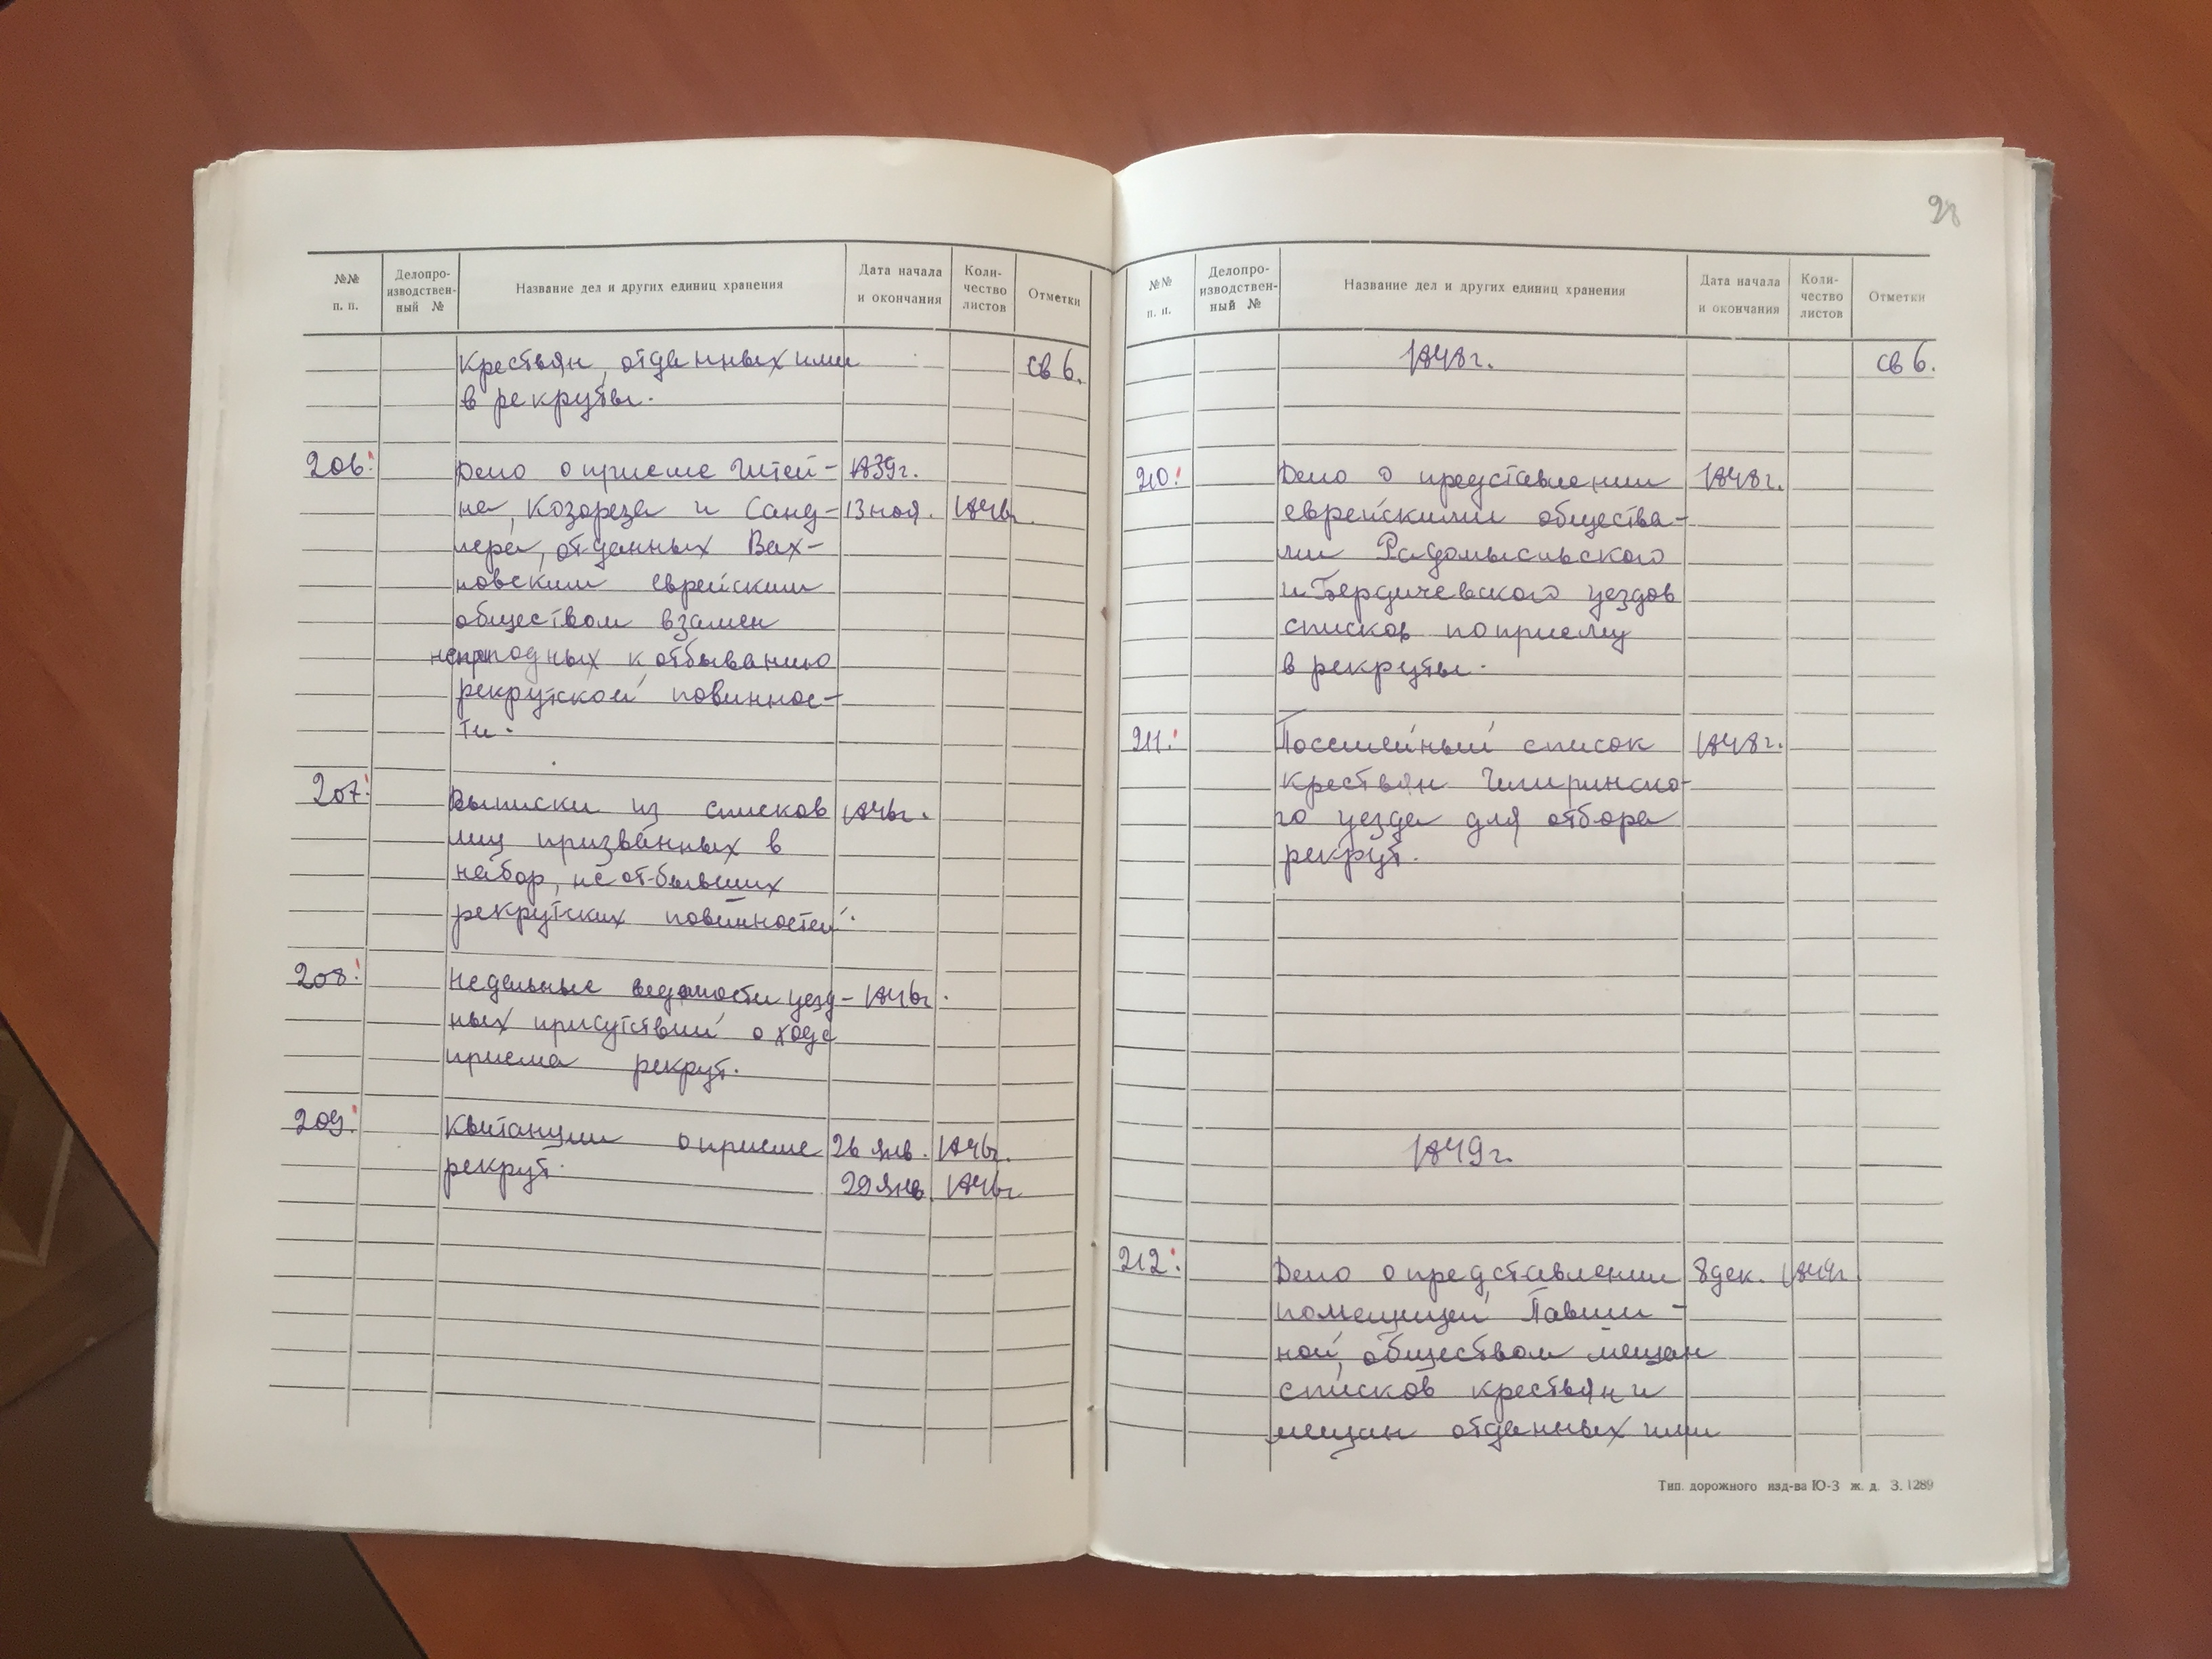 №№ п. п.
Делопро-
изводствен-
ный №
Название дел и других единиц хранения
Дата начала
и окончания
Коли-
чество
листов
Отметки
крестьян, отданных ими св 6.
в рекруты.
206. Дело о приеме Штей- 1839г.
на, Козореза и Санд- 13 ноя. 1846г.
лера, отданных Вах-
новским еврейским
обществом взамен
непригодных к отбыванию
рекрутской повиннос-
ти.
207. Выписки из списков 1846г.
лиц призванных в
набор, не отбывших
рекрутских повинностей.
208. Недельные ведомости уезд- 1846г.
ных присутствий о ходе
приема рекрут.
209. Квитанции о приеме 26 янв. 1846г.
рекрут. 29 янв. 1846г
28
№№ п. п.
Делопро-
изводствен-
ный №
Название дел и других единиц хранения
Дата начала
и окончания
Коли-
чество
листов
Отметки
1848г. св 6.
210. Дело о представлении 1848г.
еврейскими общества-
ми Радомысльского
и Бердичевского уездов
списков по приему
в рекруты.
211. Посемейный список 1848г.
крестьян Чигиринско-
го уезда для отбора
рекрут.
1849г.
212. Дело о представлении 8 дек. 1849г
помещицей Павши-
ной, обществом мещан
списков крестьян и
мещан отданных ими
Тип. дорожного изд-ва Ю-З ж. д. З. 1289